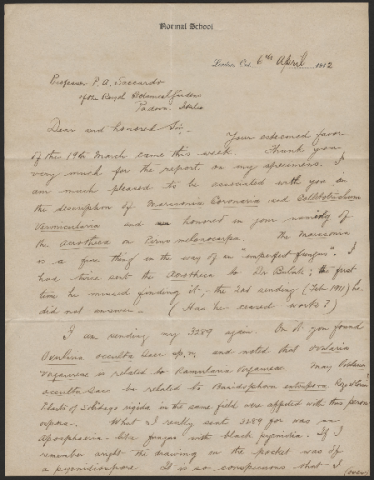 Normal School
London Ont. 6th April 1912
Professor P. A. Saccardo
of the Royal Botanical Garden
Padova. Italia
Dear and honored Sir,-
Your esteemed favor
of the 19th March came this week. Thank you
very much for the report on my specimens. I
am much pleased to be associated with you in
the description of Marssonia Coronaria and Colletotrichum
and honored in your naming of
the on Pyrus melanocarpa. The Marssonia
is a fine thing in the way of an "imperfect fungus". I
had twice sent the to Dr Bubak; the first
time he missed finding it; - the 2nd sending (Feb. 1911) he
did not answer. - (Has he ceased work?)
I am sending my 3289 again. On it you found
Ovularia occulta Sacc sp. n. and noted that ovularia
is related to Ramularia. May Ovularia
occulta Sacc be related to
Plants of Solidago rigida in the same field were affected with this
What I really sent 3289 for was an
Aposphaeria-like fungus with black pycnidia. If I
remember aright the drawing in the pocket was of
a pycnidiospore. It is so conspicuous that I
(over)